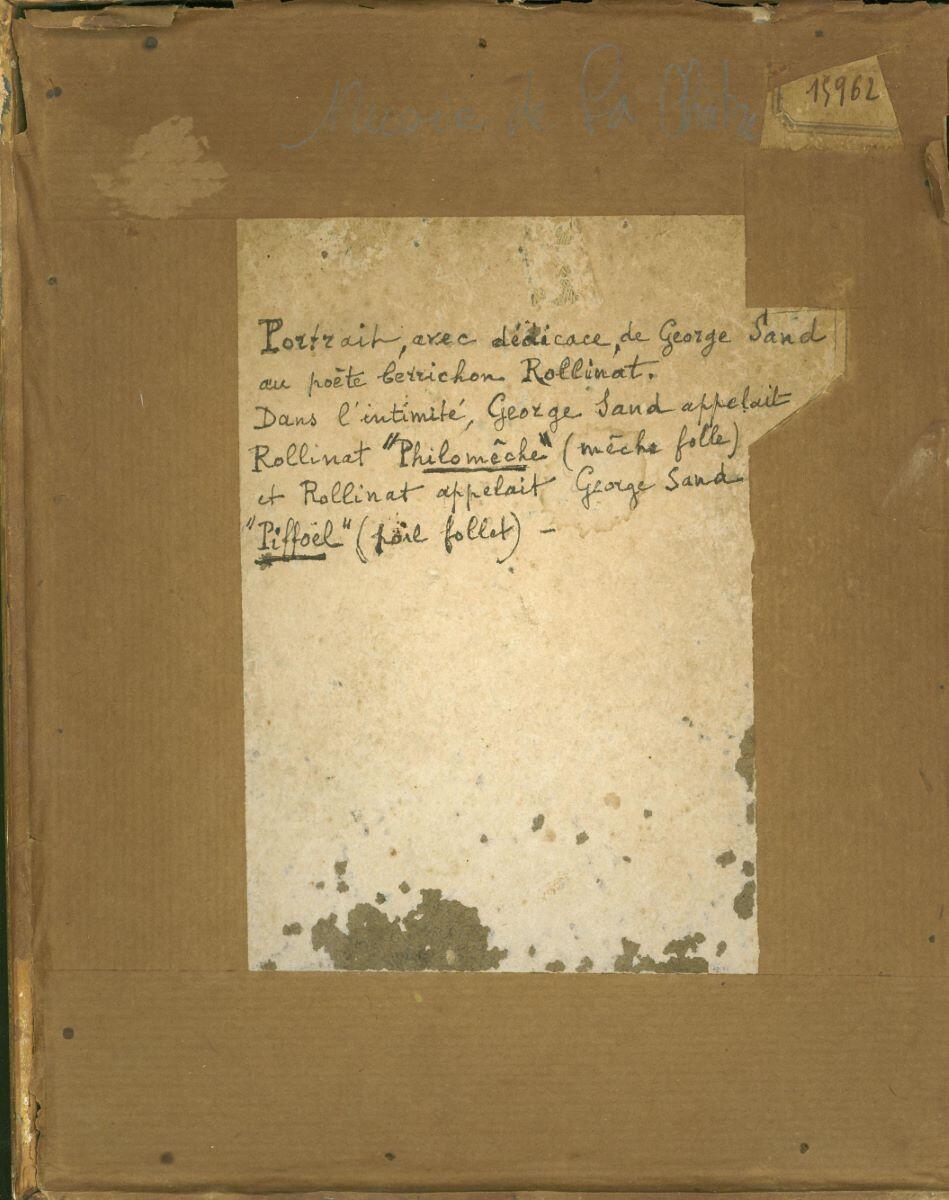 Musée de La Châtre
15962
Portrait, avec dédicace, de George Sand
au poète berrichon Rollinat.
Dans l'intimité, George Sand appelait
Rollinat "Philomêche" (mêche folle)
et Rollinat appelait George Sand
"Piffoël" (poil follet) -